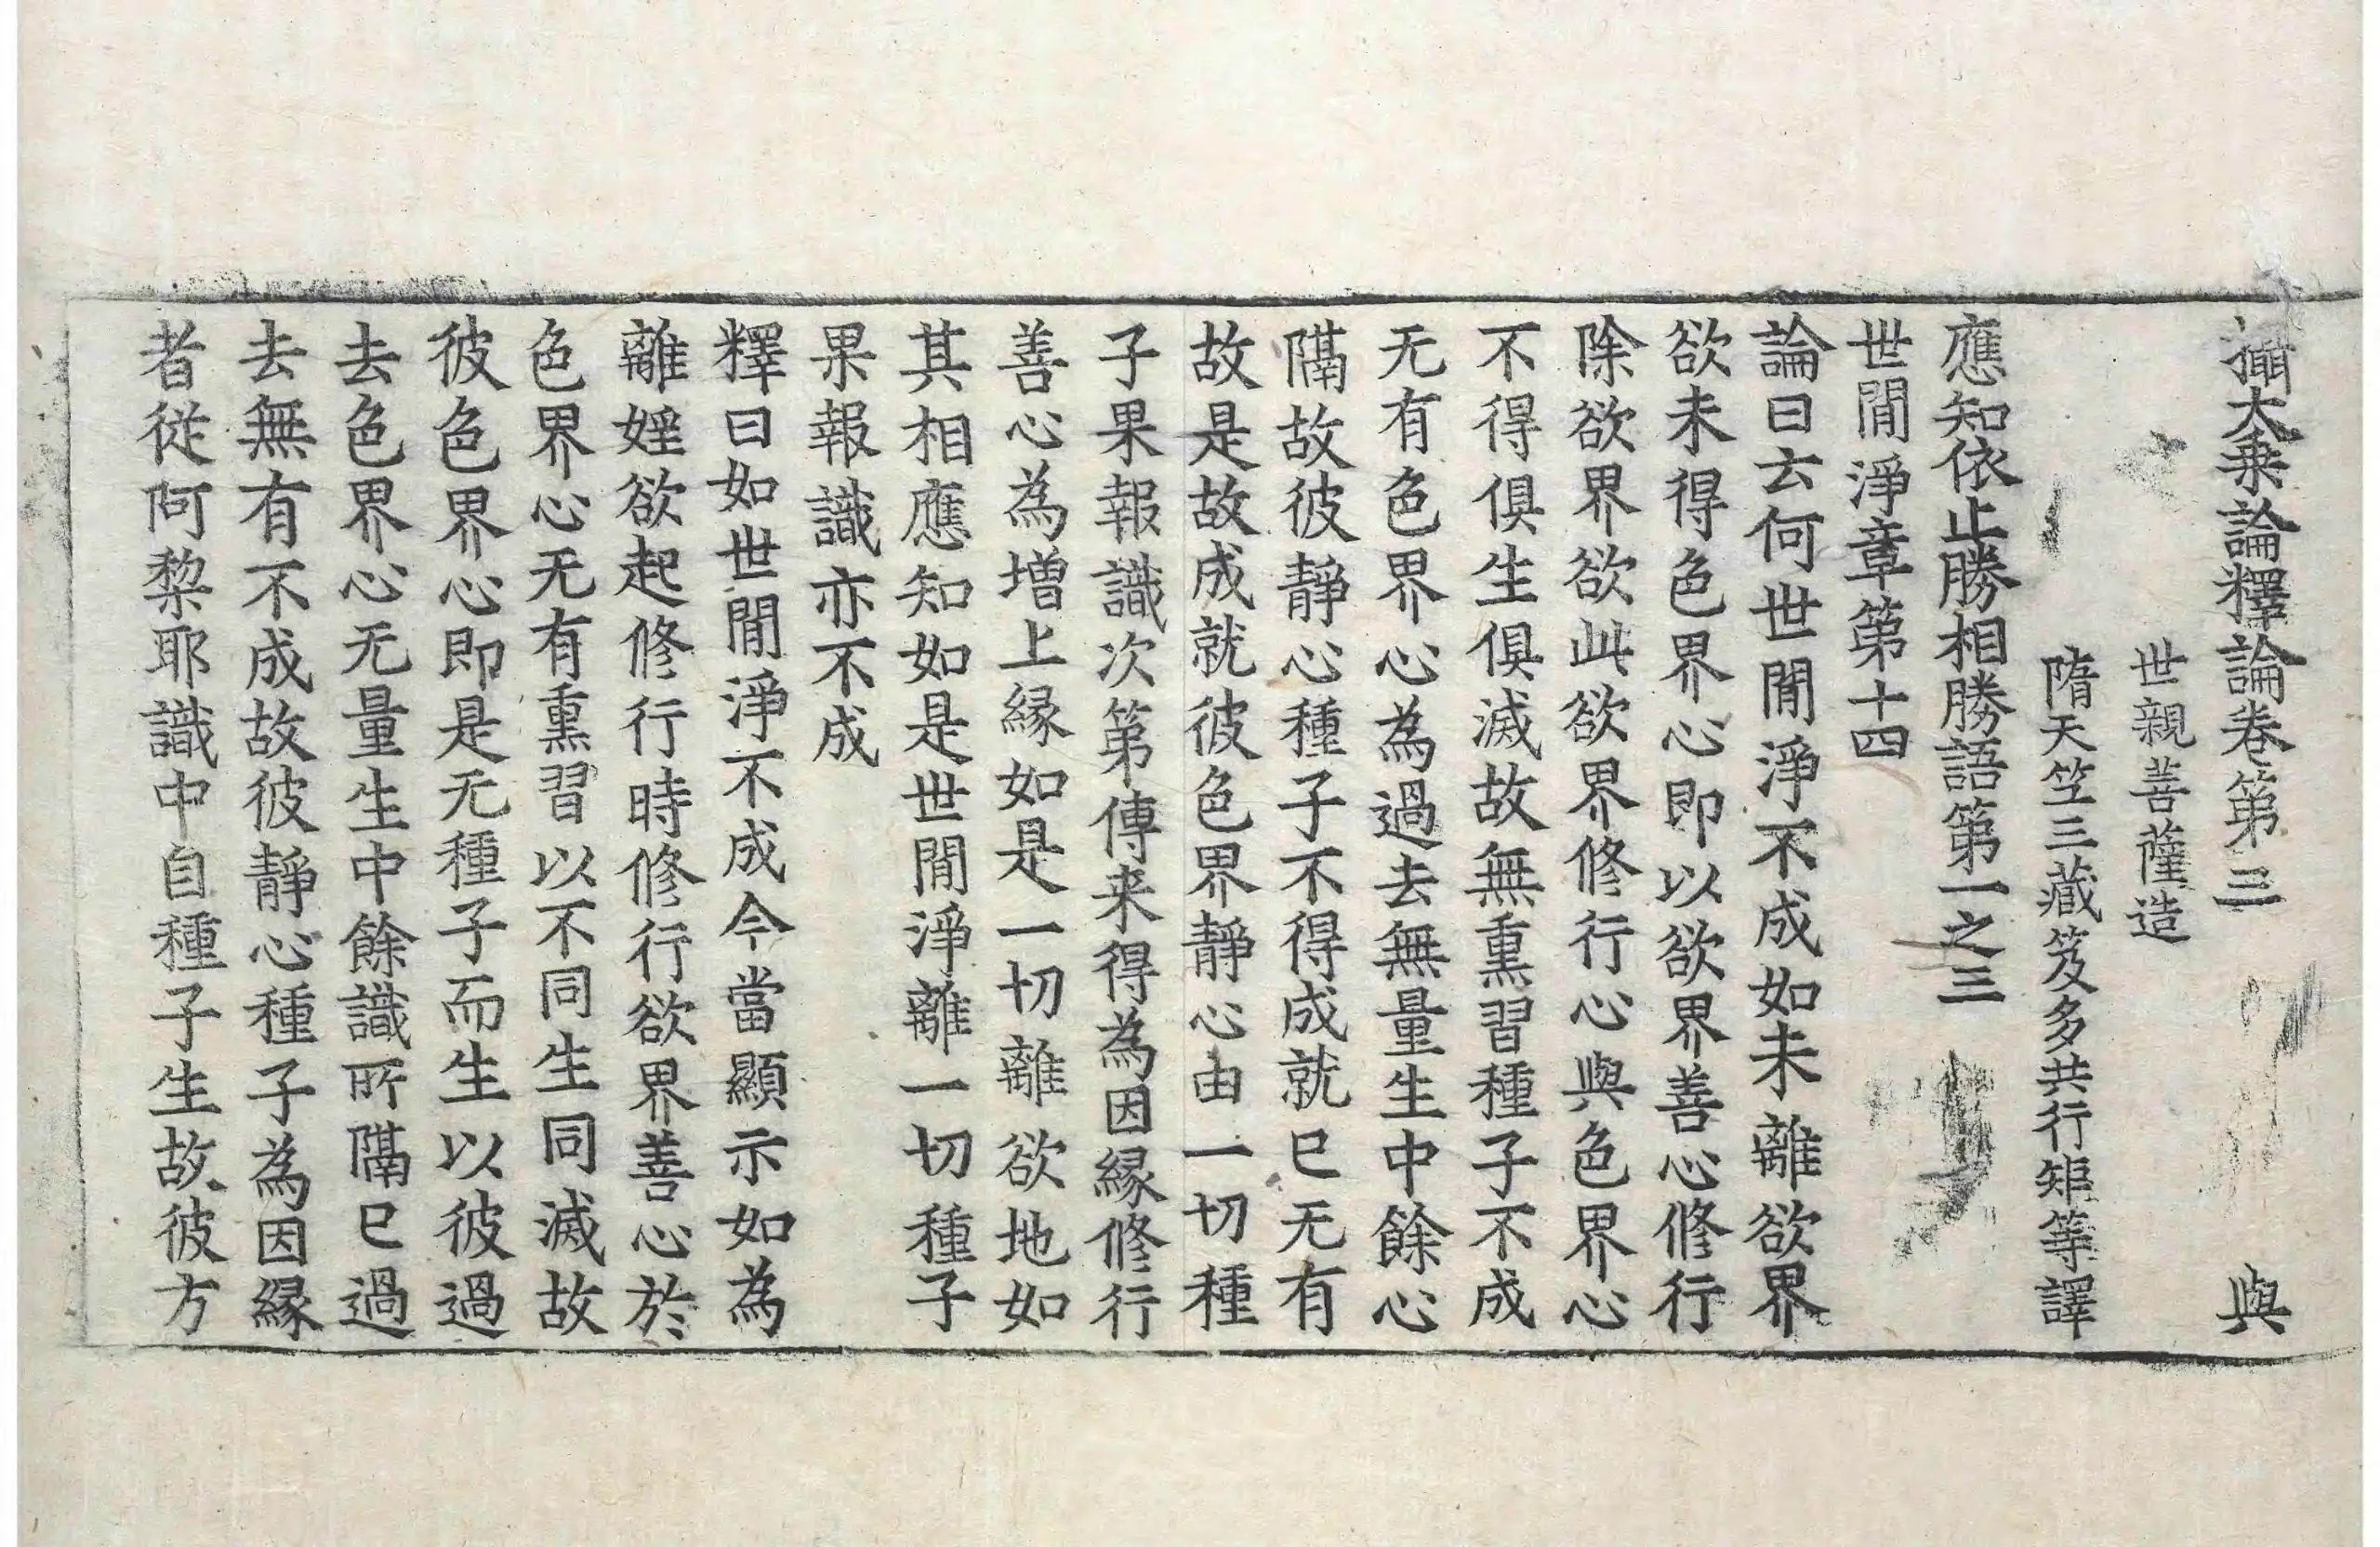 攝大乗論釋論卷第三　與
世親菩薩造
隋天笠三藏笈多共行矩等譯
應知依止勝相勝語第一之三
世閒淨章第十四
論曰云何世閒淨不成如未離欲界
欲未得色界心即以欲界善心修行
除欲界欲此欲界修行心與色界心
不得俱生俱滅故無熏習種子不成
无有色界心為過去無量生中餘心
隔故彼靜心種子不得成就巳无有
故是故成就彼色界靜心由一切種
子果報識次第傳来得為因縁修行
善心為增上縁如是一切離欲地如
其相應知如是世閒淨離一切種子
果報識亦不成
釋曰如世閒淨不成今當顯示如為
離婬欲起修行時修行欲界善心於
色界心无有熏習以不同生同滅故
彼色界心即是无種子而生以彼過
去色界心无量生中餘識所隔巳過
去無有不成故彼靜心種子為因縁
者從阿棃耶識中自種子生故彼方